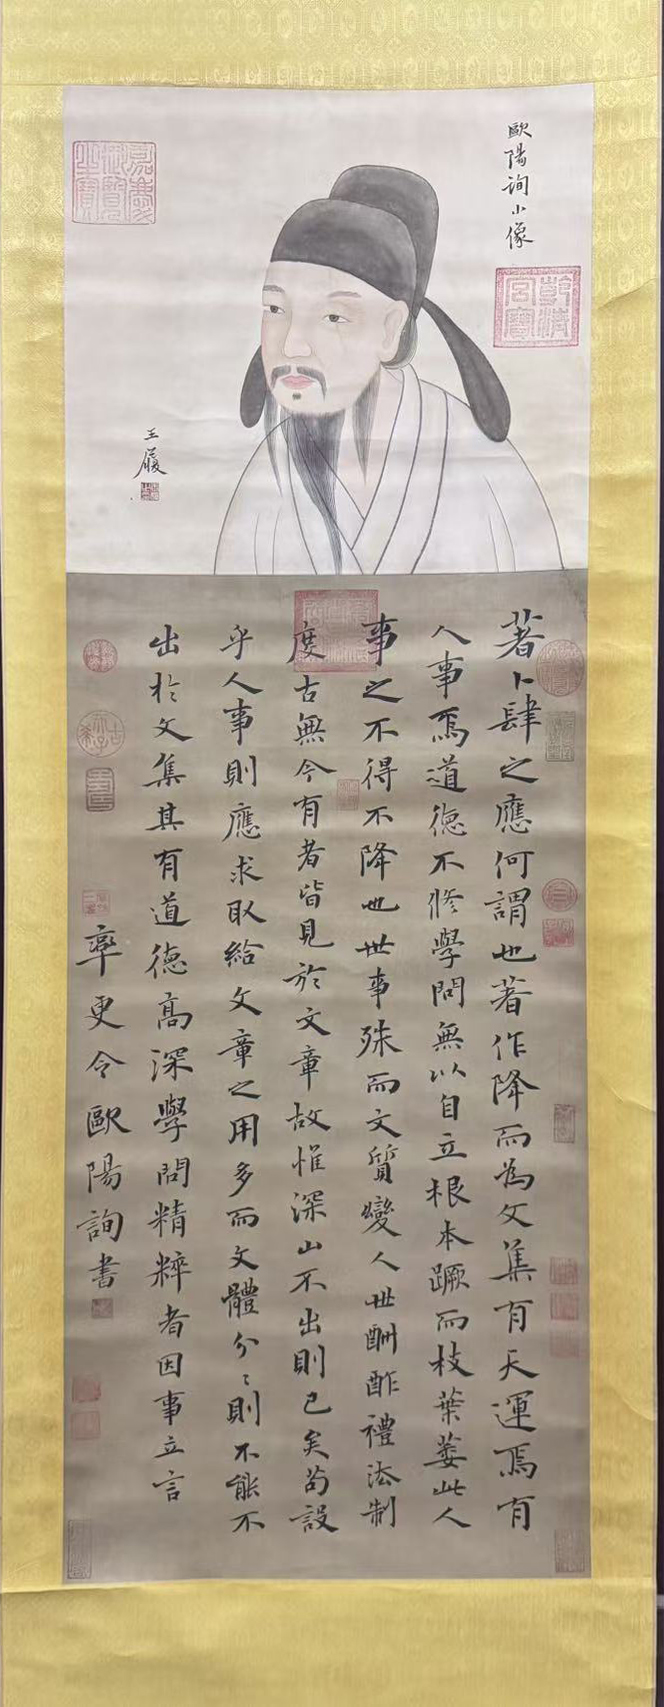 歐陽詢小像
乾清宮寶
王履
著卜肆之應何謂也著作降而為文集有天運焉有
人事焉道德不修學問無以自立根本蹶而枝葉萎此人
事之不得不降也世事殊而文質變人世酬酢禮法制
度古無今有者皆見於文章故惟深山不出則已矣苟設
乎人事則應求取給文章之用多而文體分〻則不能不
出於文集其有道德高深學問精粹者因事立言
率更令歐陽詢書